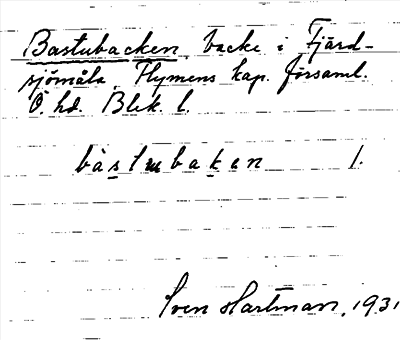 Bastubacken, backe i Fjärd-
sjömåla, Flymens kap. församl.
Ö hd. Blek. l.
bàstubaken 1.
Sven Hartman, 1931